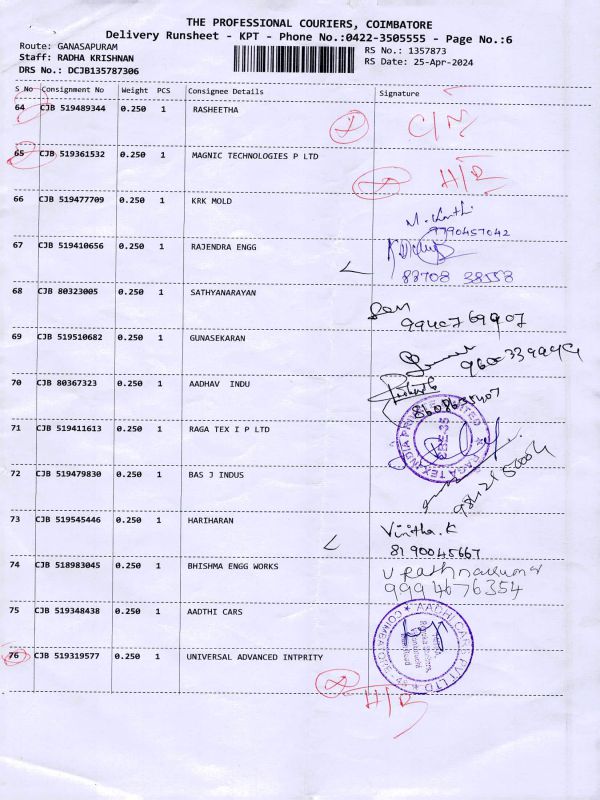 THE PROFESSIONAL COURIERS, COIMBATORE
Delivery Runsheet - KPT - Phone No.:0422-3505555 - Page No.:6
Route: GANASAPURAM
RS No.: 1357873
Staff: RADHA KRISHNAN
RS Date: 25-Apr-2024
DRS No.: DCJB135787306
S No Consignment No Weight PCS Consignee Details Signature
64 CJB 519489344 0.250 1 RASHEETHA C/M
65 CJB 519361532 0.250 1 MAGNIC TECHNOLOGIES P LTD H/R
66 CJB 519477709 0.250 1 KRK MOLD
9790457042
67 CJB 519410656 0.250 1 RAJENDRA ENGG
83708 38553
68 CJB 80323005 0.250 1 SATHYANARAYAN
9940769907
69 CJB 519510682 0.250 1 GUNASEKARAN
70 CJB 80367323 0.250 1 AADHAV INDU
71 CJB 519411613 0.250 1 RAGA TEX I P LTD
72 CJB 519479830 0.250 1 BAS J INDUS
73 CJB 519545446 0.250 1 HARIHARAN
Vinitha.K
8190045667
74 CJB 518983045 0.250 1 BHISHMA ENGG WORKS
9994676354
75 CJB 519348438 0.250 1 AADTHI CARS
AADHI CARS PVT LTD
COIMBATORE
76 CJB 519319577 0.250 1 UNIVERSAL ADVANCED INTPRITY
H/R